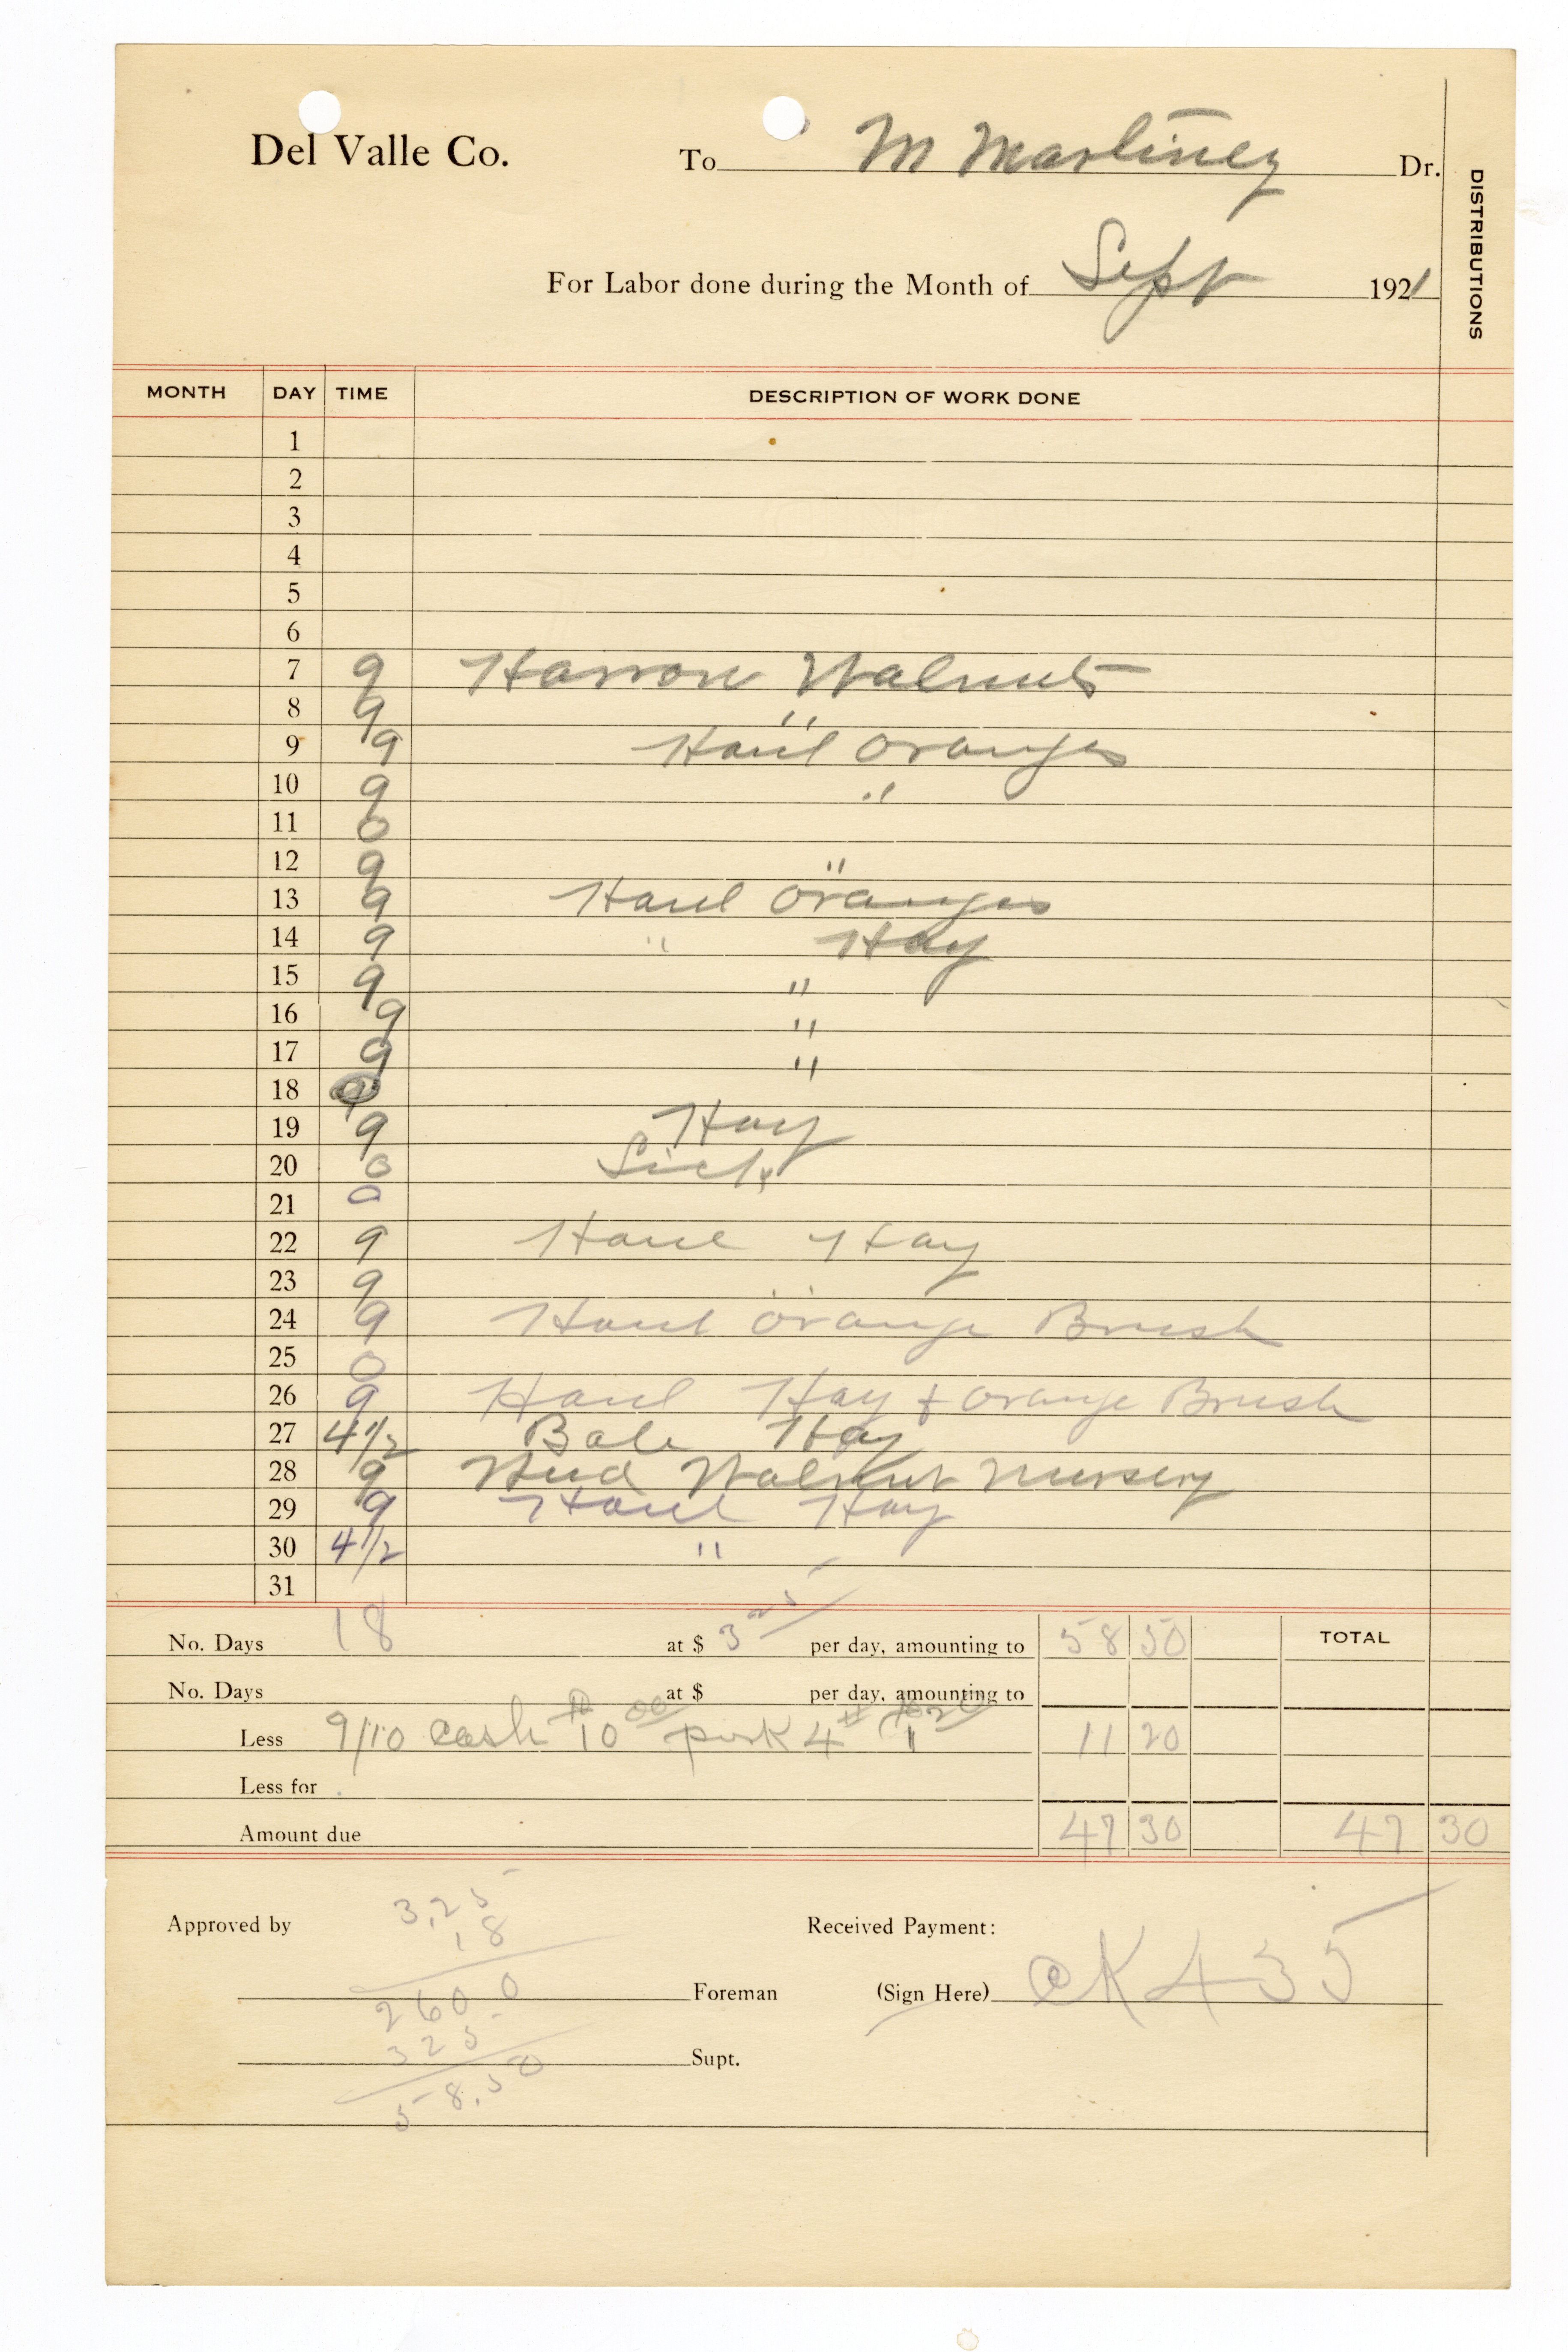 Del Valle Co. To M Martinez Dr.
DISTRIBUTIONS
For Labor done during the Month of Sept 1921
MONTH DAY TIME DESCRIPTION OF WORK DONE
1
2
3
4
5
6
7 9 Harrow Walnuts
8 9 "
9 9 Haul Oranges
10 9 "
11 0
12 9 "
13 9 Haul Oranges
14 9 " Hay
15 9 "
16 9 "
17 9 "
18
19 9 Hay
20 0 Sick
21 0
22 9 Haul Hay
23 9 "
24 9 Haul Orange Brush
25 0
26 9 Haul Hay + Orange Brush
27 4 1/2 Bale Hay
28 9 Walnut Nursery
29 9 Haul Hay
30 4 1/2 "
31
No. Days 18 at $ 3 25 per day, amounting to 58 50 TOTAL
No. Days at $ per day, amounting to
Less 9/10 cash $10 00 pork 4# 1 20 11 20
Less for
Amount due 47 30 47 30
Approved by Received Payment:
3.25
18
2600
325
58.50
Foreman (Sign Here) CK 435
Supt.